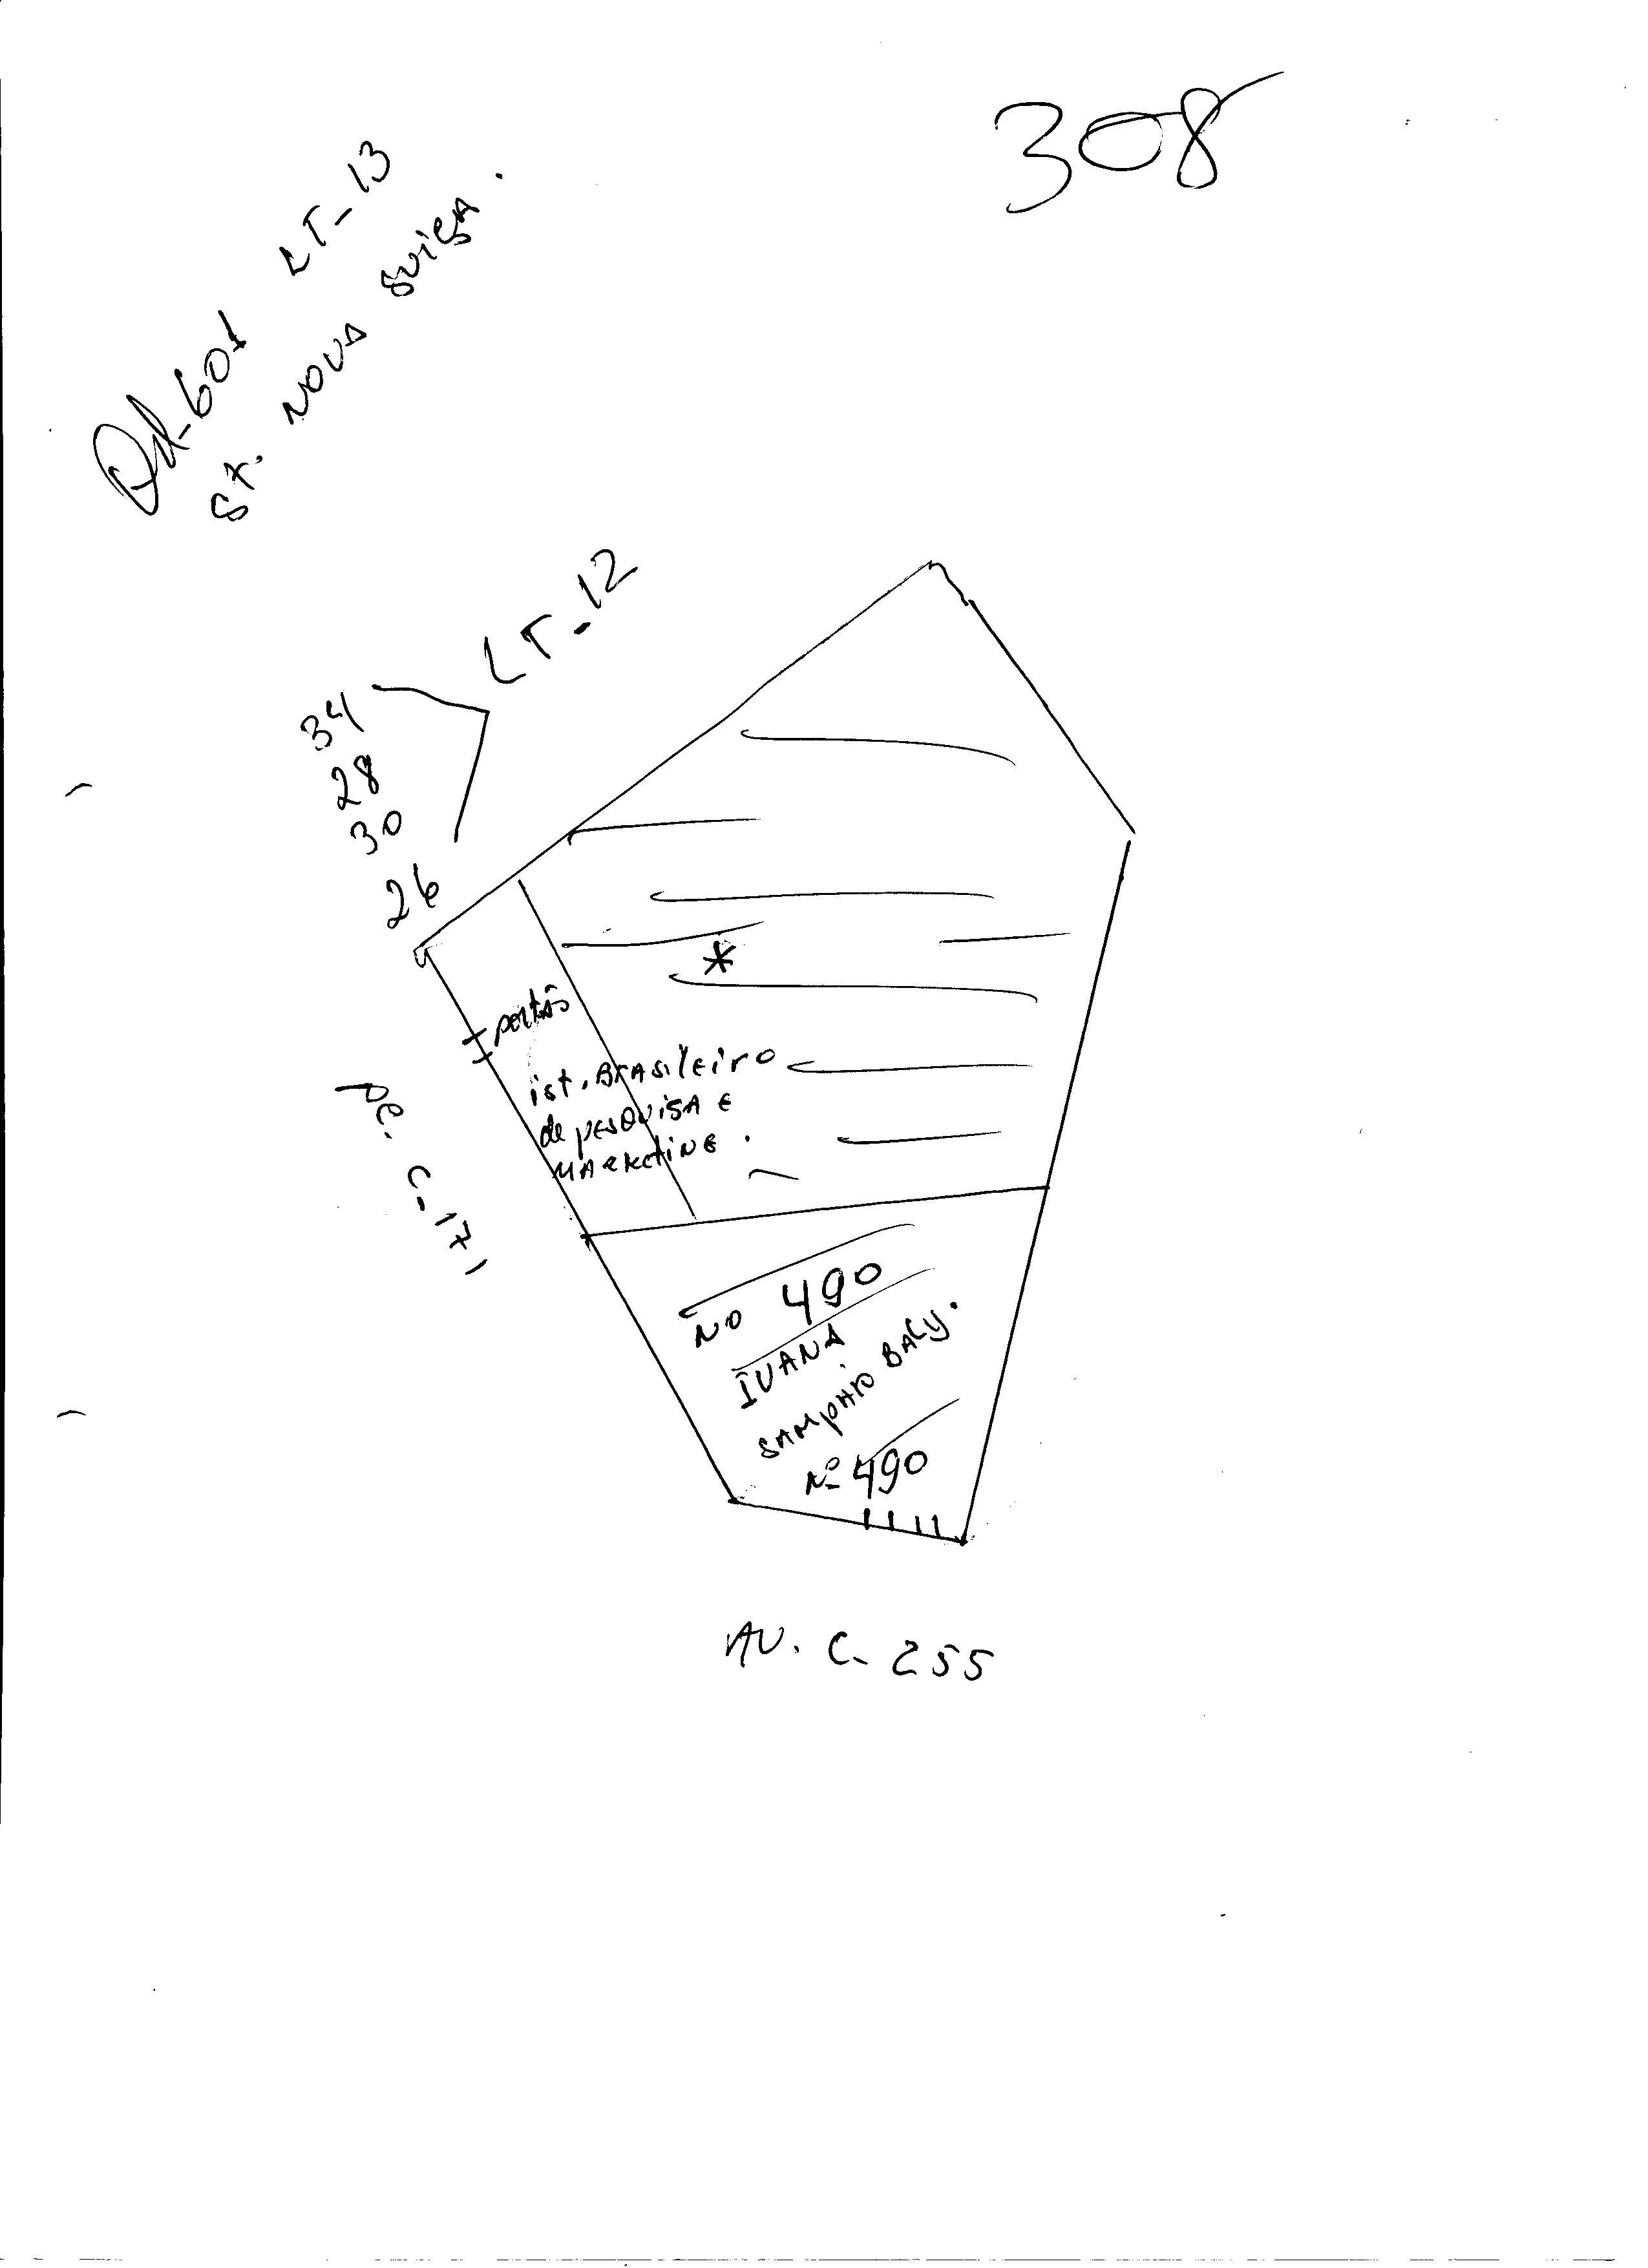 308
Qd-601 LT-13
ST. NOVA SUIÇA.
LT-12
34
28
30
26
*
portão
ist. BRASILEIRO
de pESQUISA E
MARKETING.
C-171
NO 490
IVANA
SAMPAIO BALY.
Nº 490
AV. C-255